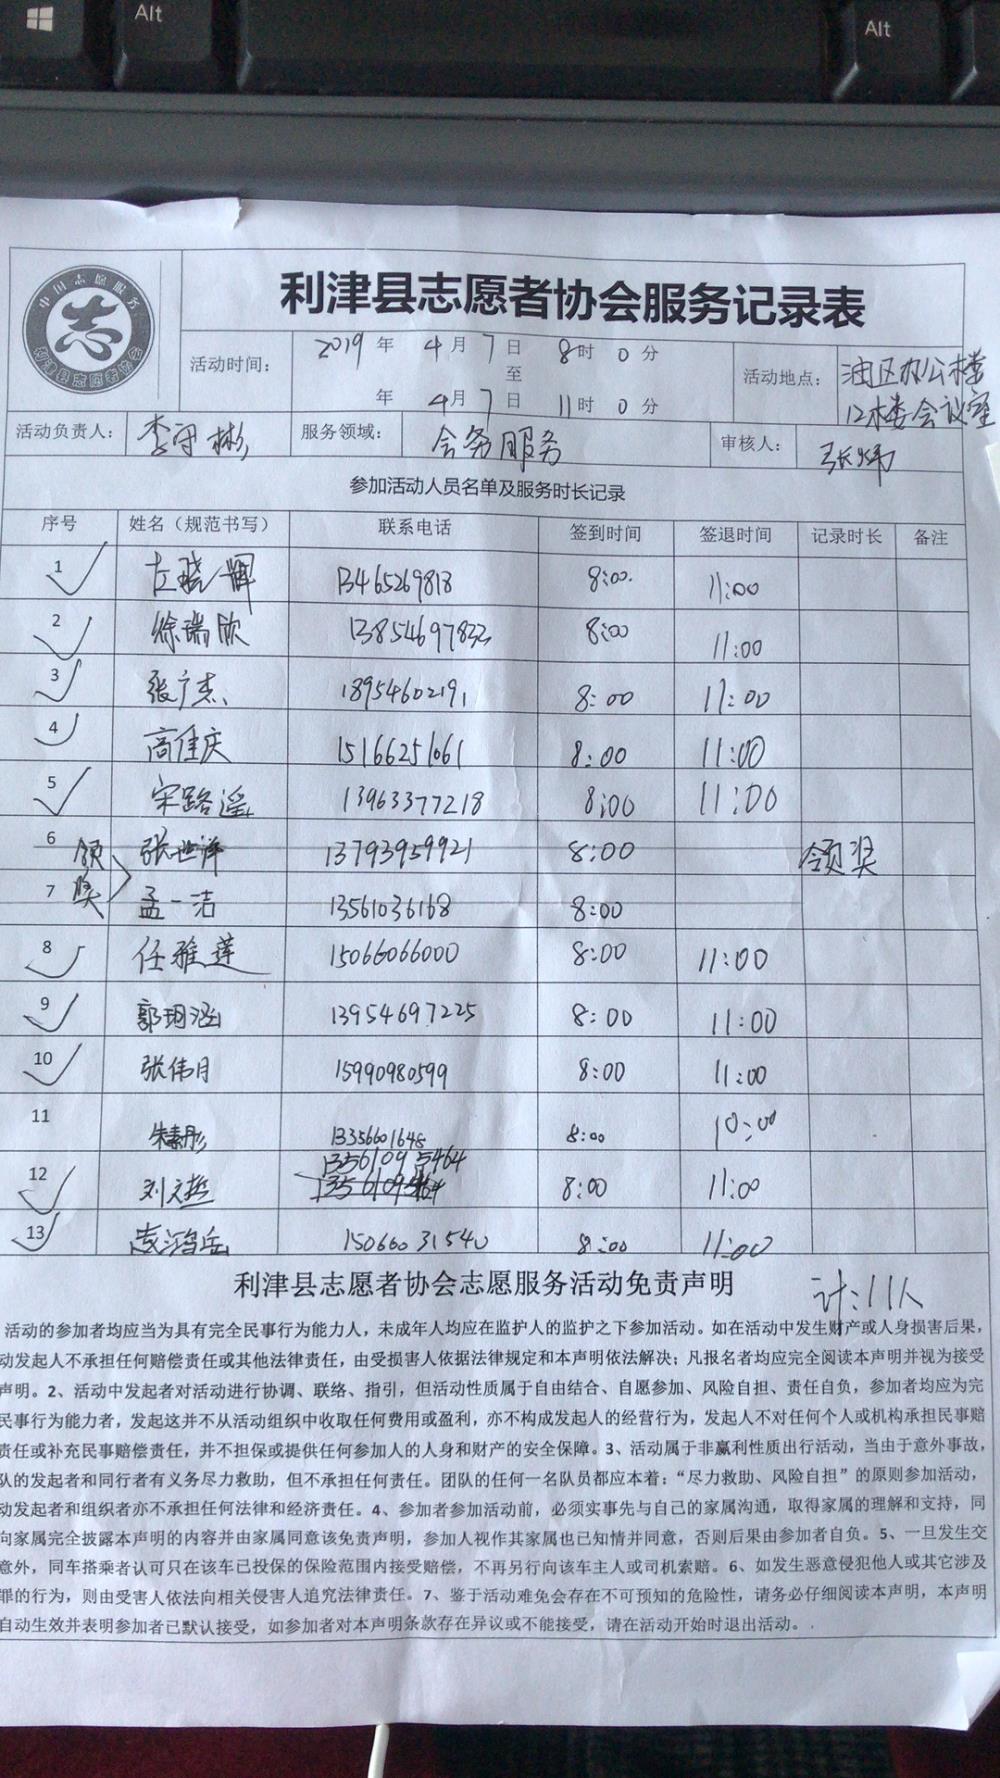 Alt
Alt
中国志愿服务
志
利津县志愿者协会
利津县志愿者协会服务记录表
活动时间： 2019 年 4 月 7 日 8 时 0 分
至
年 4 月 7 日 11 时 0 分
活动地点： 油区办公楼
12楼会议室
活动负责人： 李守彬 服务领域： 会务服务 审核人： 张炜
参加活动人员名单及服务时长记录
序号 姓名（规范书写） 联系电话 签到时间 签退时间 记录时长 备注
1 左晓辉 13465269818 8:00 11:00
2 徐瑞欣 13854697832 8:00 11:00
3 张广杰 18954602191 8:00 11:00
4 高佳庆 15166251061 8:00 11:00
5 宋路遥 13963377218 8:00 11:00
6 领 张世泽 13793959921 8:00 领奖
7 奖 孟一洁 13561036168 8:00
8 任雅莲 15066066000 8:00 11:00
9 郭玥涵 13954697225 8:00 11:00
10 张伟月 15990980599 8:00 11:00
11 朱素彤 13356601648 8:00 10:00
13561095464
12 刘文哲 8:00 11:00
13 15066031540 8:00 11:00
利津县志愿者协会志愿服务活动免责声明 计:11人
活动的参加者均应当为具有完全民事行为能力人，未成年人均应在监护人的监护之下参加活动。如在活动中发生财产或人身损害后果，
动发起人不承担任何赔偿责任或其他法律责任，由受损害人依据法律规定和本声明依法解决；凡报名者均应完全阅读本声明并视为接受
声明。2、活动中发起者对活动进行协调、联络、指引，但活动性质属于自由结合、自愿参加、风险自担、责任自负，参加者均应为完
民事行为能力者，发起这并不从活动组织中收取任何费用或盈利，亦不构成发起人的经营行为，发起人不对任何个人或机构承担民事赔
责任或补充民事赔偿责任，并不担保或提供任何参加人的人身和财产的安全保障。3、活动属于非赢利性质出行活动，当由于意外事故，
队的发起者和同行者有义务尽力救助，但不承担任何责任。团队的任何一名队员都应本着：“尽力救助、风险自担”的原则参加活动，
动发起者和组织者亦不承担任何法律和经济责任。4、参加者参加活动前，必须实事先与自己的家属沟通，取得家属的理解和支持，同
向家属完全披露本声明的内容并由家属同意该免责声明，参加人视作其家属也已知情并同意，否则后果由参加者自负。5、一旦发生交
意外，同车搭乘者认可只在该车已投保的保险范围内接受赔偿，不再另行向该车主人或司机索赔。6、如发生恶意侵犯他人或其它涉及
罪的行为，则由受害人依法向相关侵害人追究法律责任。7、鉴于活动难免会存在不可预知的危险性，请务必仔细阅读本声明，本声明
自动生效并表明参加者已默认接受，如参加者对本声明条款存在异议或不能接受，请在活动开始时退出活动。